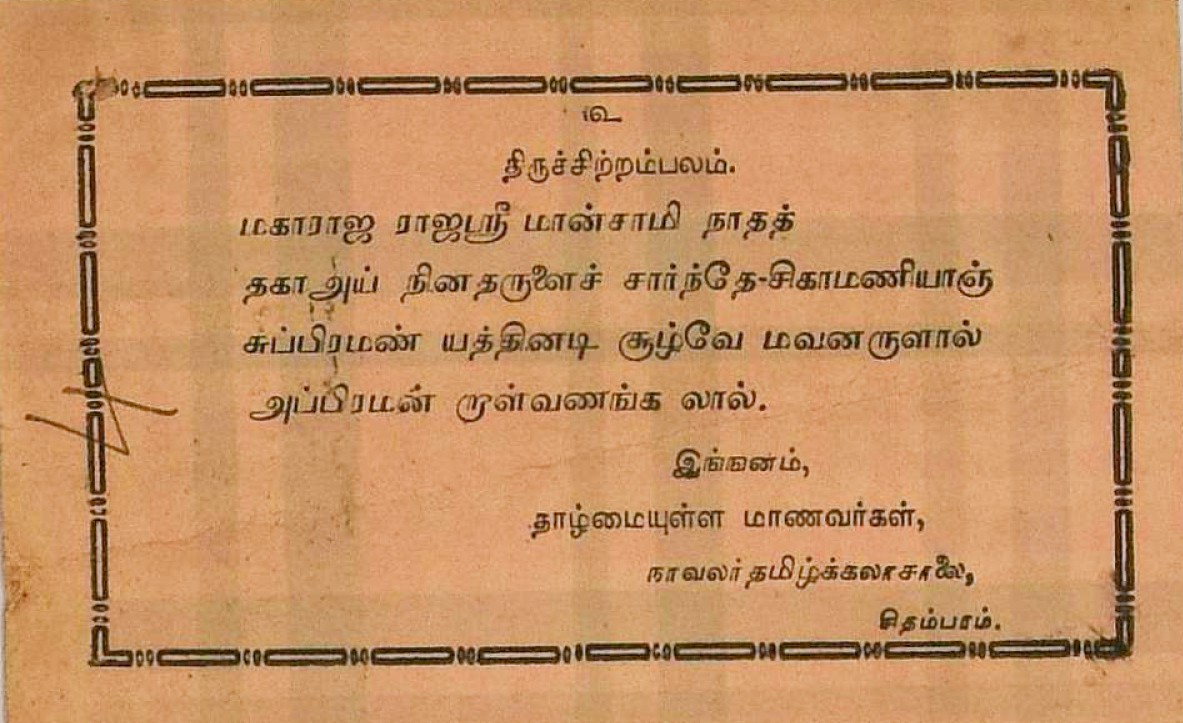 உ
திருச்சிற்றம்பலம்.
மகாராஜ ராஜஸ்ரீ மான்சாமி நாதத்
தகாஅய் நினதருளைச் சார்ந்தே-சிகாமணியாஞ்
சுப்பிரமண் யத்தினடி சூழ்வே மவனருளால்
அப்பிரமன் றாள்வணங்க லால்.
இங்ஙனம்,
தாழ்மையுள்ள மாணவர்கள்,
நாவலர்தமிழ்க்கலாசாலை,
சிதம்பரம்.